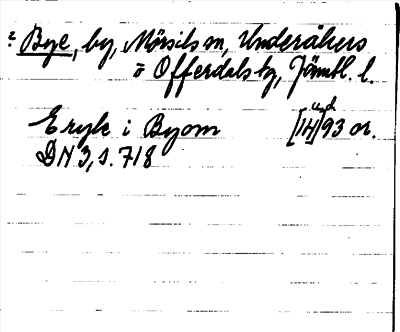 2 Bye, by, Mörsils sn, Underåkers
o Offerdals tg, Jämtl. l.
Eryk i Byom [14]93 or.
DN 3, s. 718